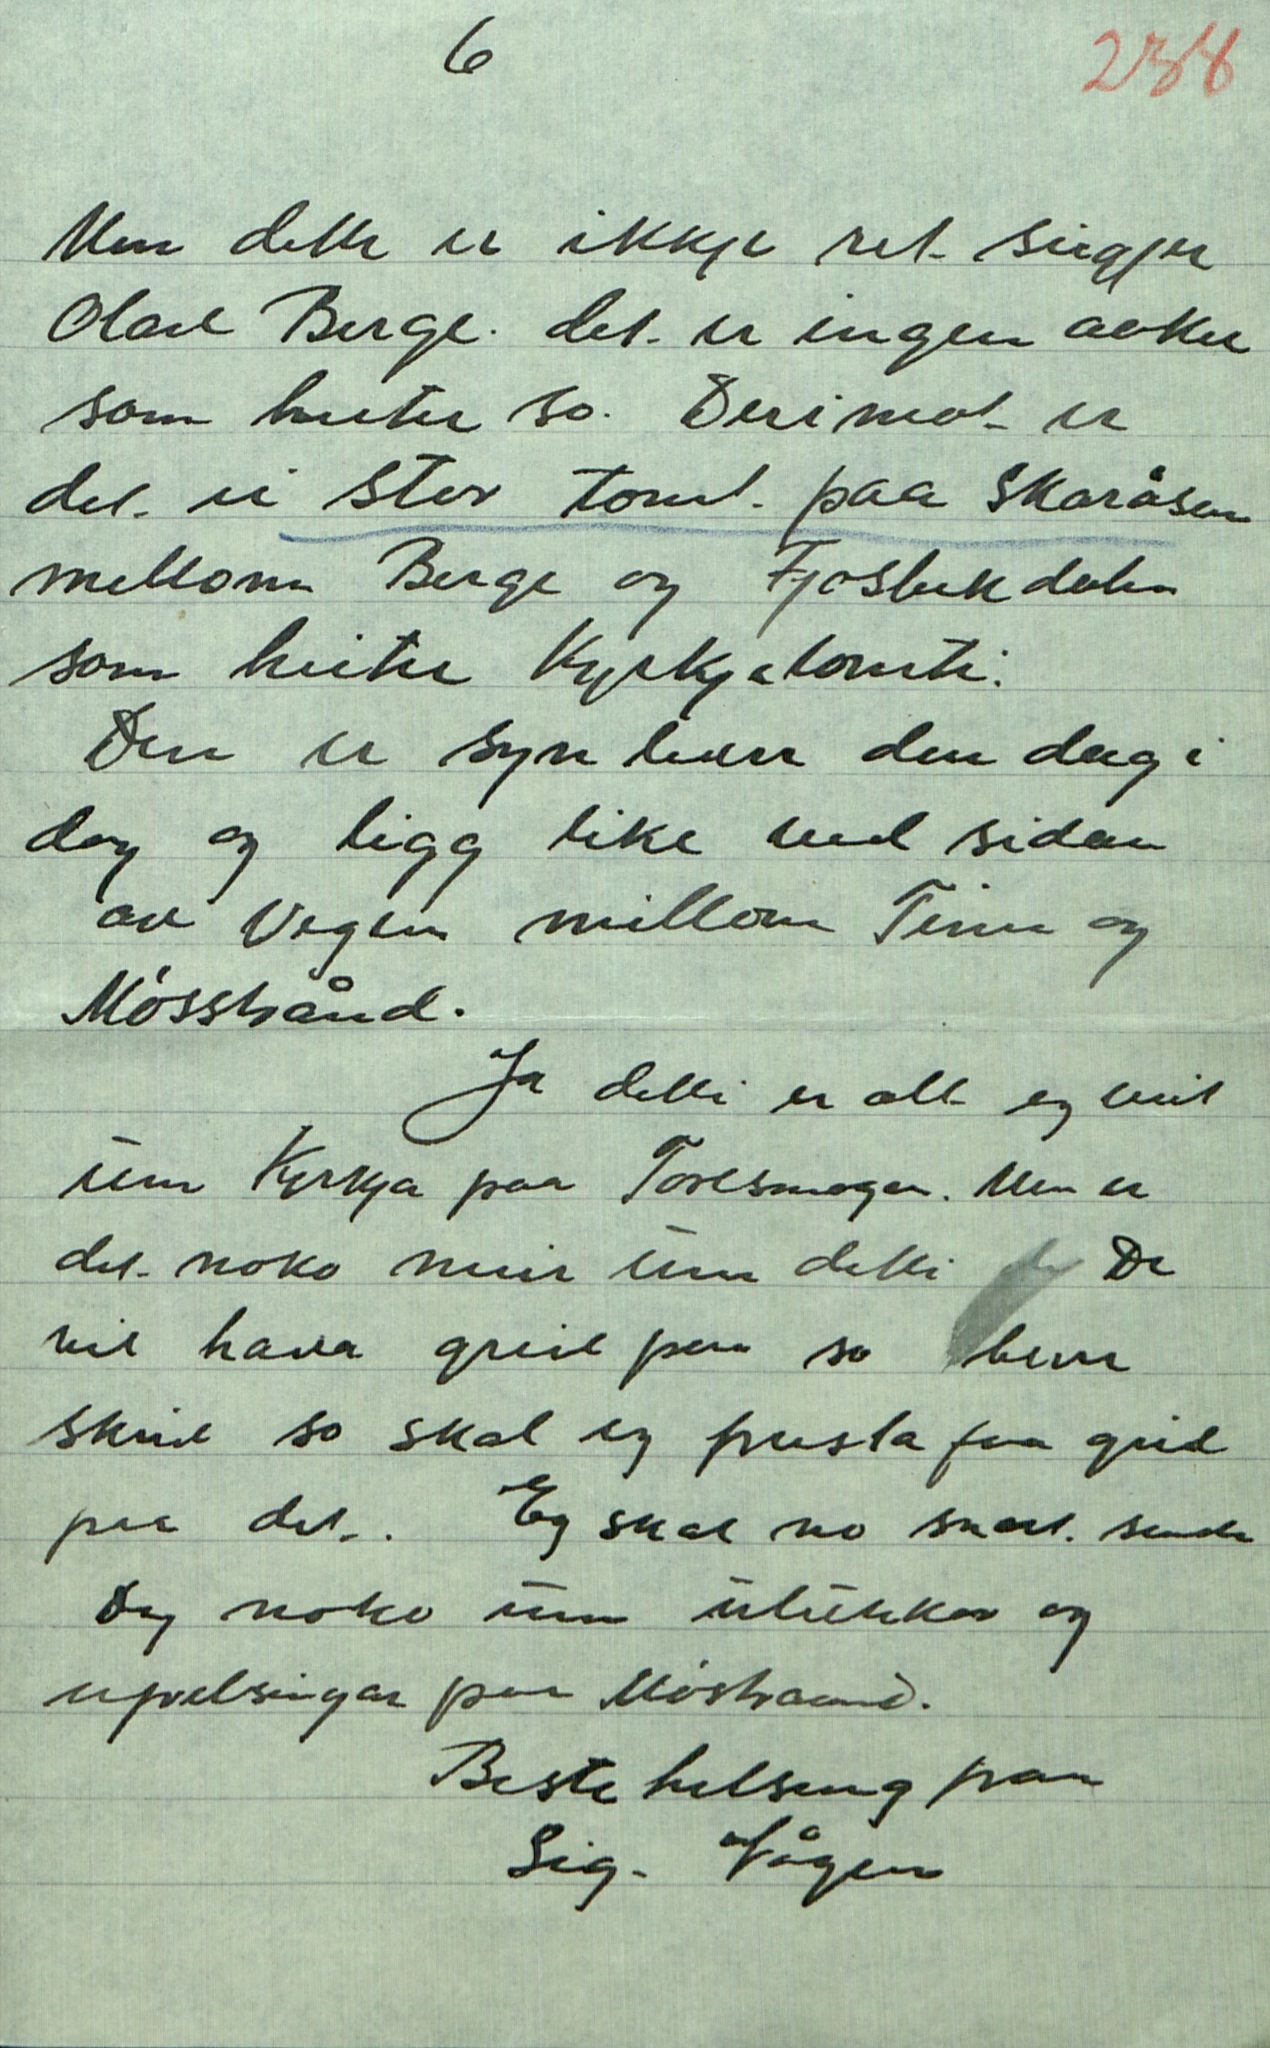 6
238
Men dette er ikkje ret. siegjer
Olav Berge. det. er ingen aaker
som heeter so. Derimot er
det. ei stor tomt. paa Skaråsen
mellom Berge og Fjosbekdalen
som heiter Kyrkjetomti.
Den er synbarr den dag i
dag og ligg like ved sidan
av Vegen millom Tinn og
Mösstrånd.
Ja detti er alt eg veit
um Kyrkja paa Toresmogen. Men er
det. noko meir um detti De
vil hava greie paa so berre
skriv so skal eg prøsta faa greid
paa det. Eg skal no snart. senda
Dg noko um og
paa Möstraand.
Beste helseng fraa
Sig. Vågen